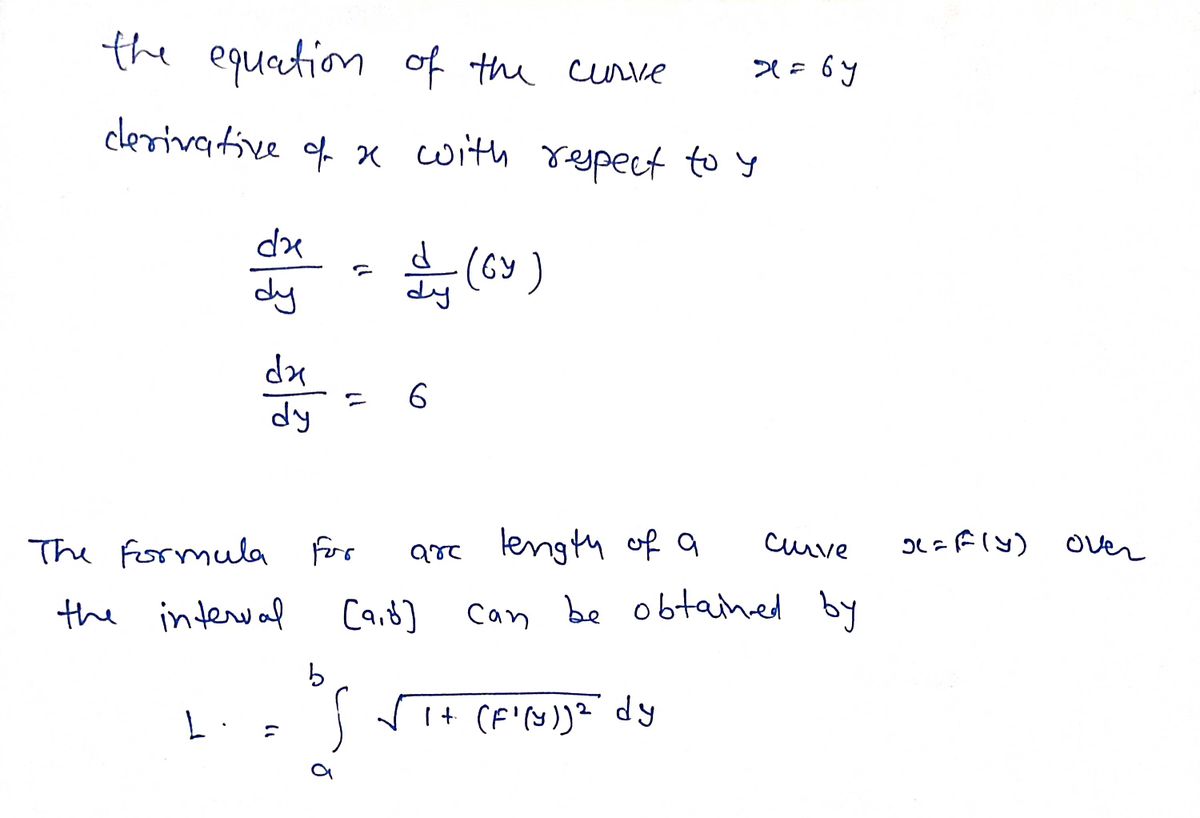 the equation of the curve x = 6y
derivative of x with respect to y
dx/dy = d/dy (6y)
dx/dy = 6
The formula for arc length of a curve x = F(y) over
the interval [a,b] can be obtained by
L = ∫_a^b √(1 + (F'(y))²) dy